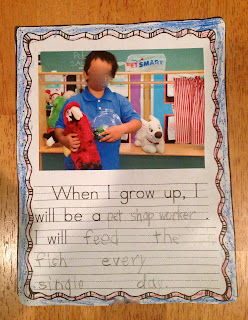 PETSMART
When I grow up, I
will be a pet shop worker.
I will feed the
fish every
single day.